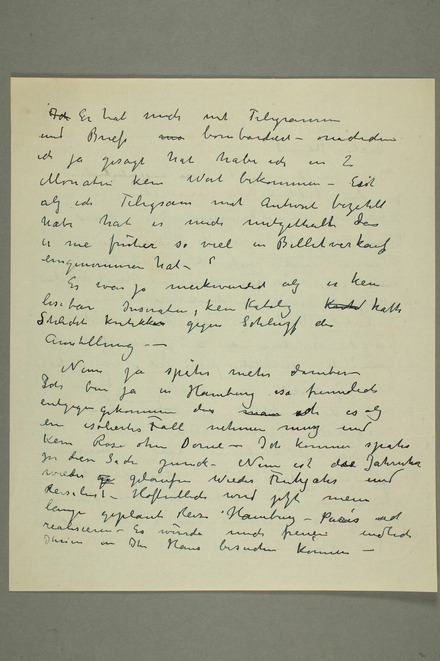 Er hat mich mit Telegrammen
und Briefe bombardiert – nachdem
ich ja gesagt hat habe ich in 2
Monaten kein Wort bekommen – Erst
als ich Telegram mit Antwort bezahlt
habe hat er mich mitgetheilt das
er nie früher so viel in Billetverkauf
eingenommen hat –
Es war ja merkwürdig als er kein
Inseraten, kein Katalog hatte
Schlechte Kritikken gegen Schluss der
Ausstellung —
Nun ja später mehr darüber
Ich bin ja in Hamburg so freundlich
entgegengekommen das ich es als
ein isoliertes Fall nehmen mug und
Kein Rose ohne Dorne – Ich komme später
zu dem Sache zurück – Nun ist das Jahr
wieder gelaufen wieder Frühjahr und
Reiselust – Hoffentlich wird jetzt mein
lange geplante Reise Hamburg – Paris
realisieren – Es würde mich freuen endlich
in Ihr Haus besuchen können –